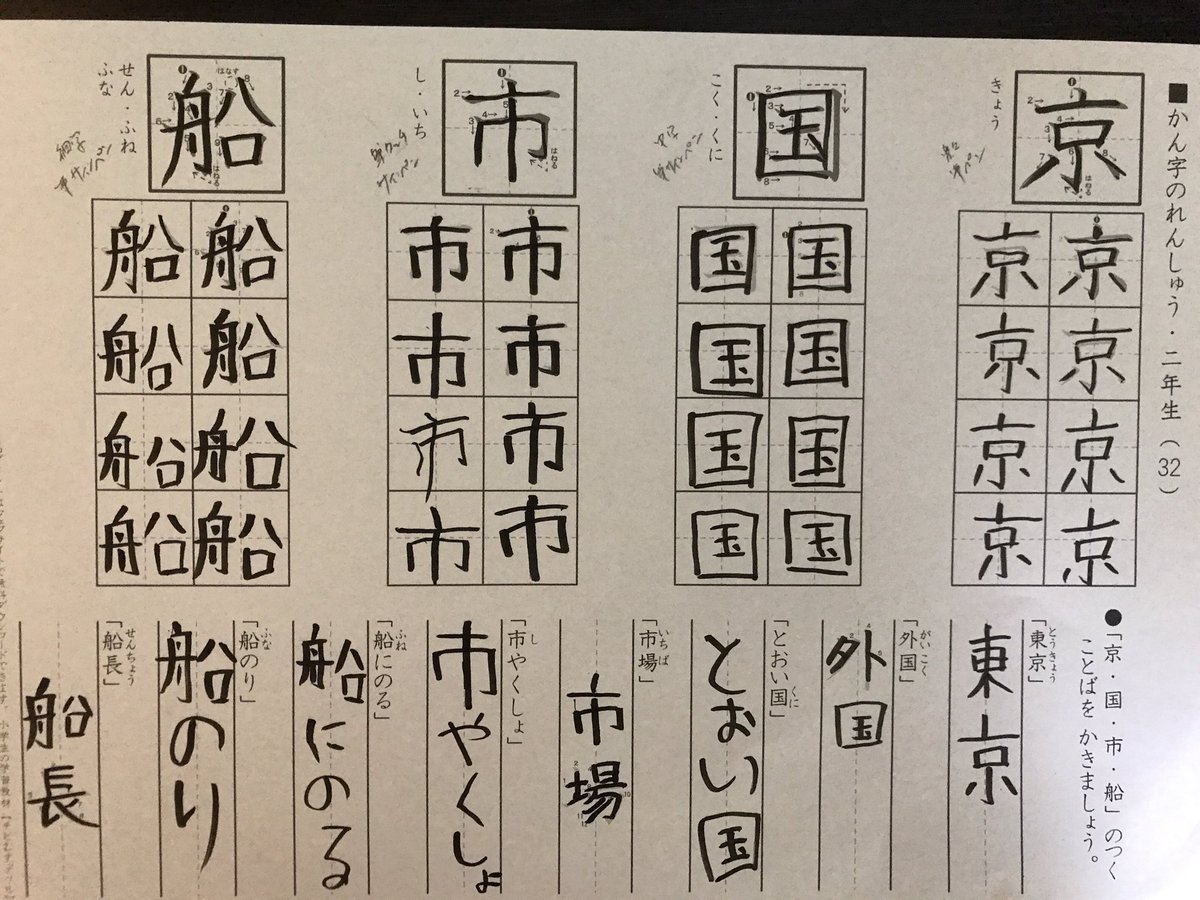 ■かん字のれんしゅう・二年生(32)
きょう
京
京京京京
京京京京
こく・くに
国
国国国国
国国国国
し・いち
市
市市市市
市市市市
せん・ふね
ふな
船
船船船船
船船船船
●「京・国・市・船」のつく
ことばを かきましょう。
「東京」
とうきょう
東京
「外国」
がいこく
外国
「とおい国」
くに
とおい国
「市場」
いちば
市場
「市やくしょ」
し
市やくしょ
「船にのる」
ふね
船にのる
「船のり」
ふな
船のり
「船長」
せんちょう
船長